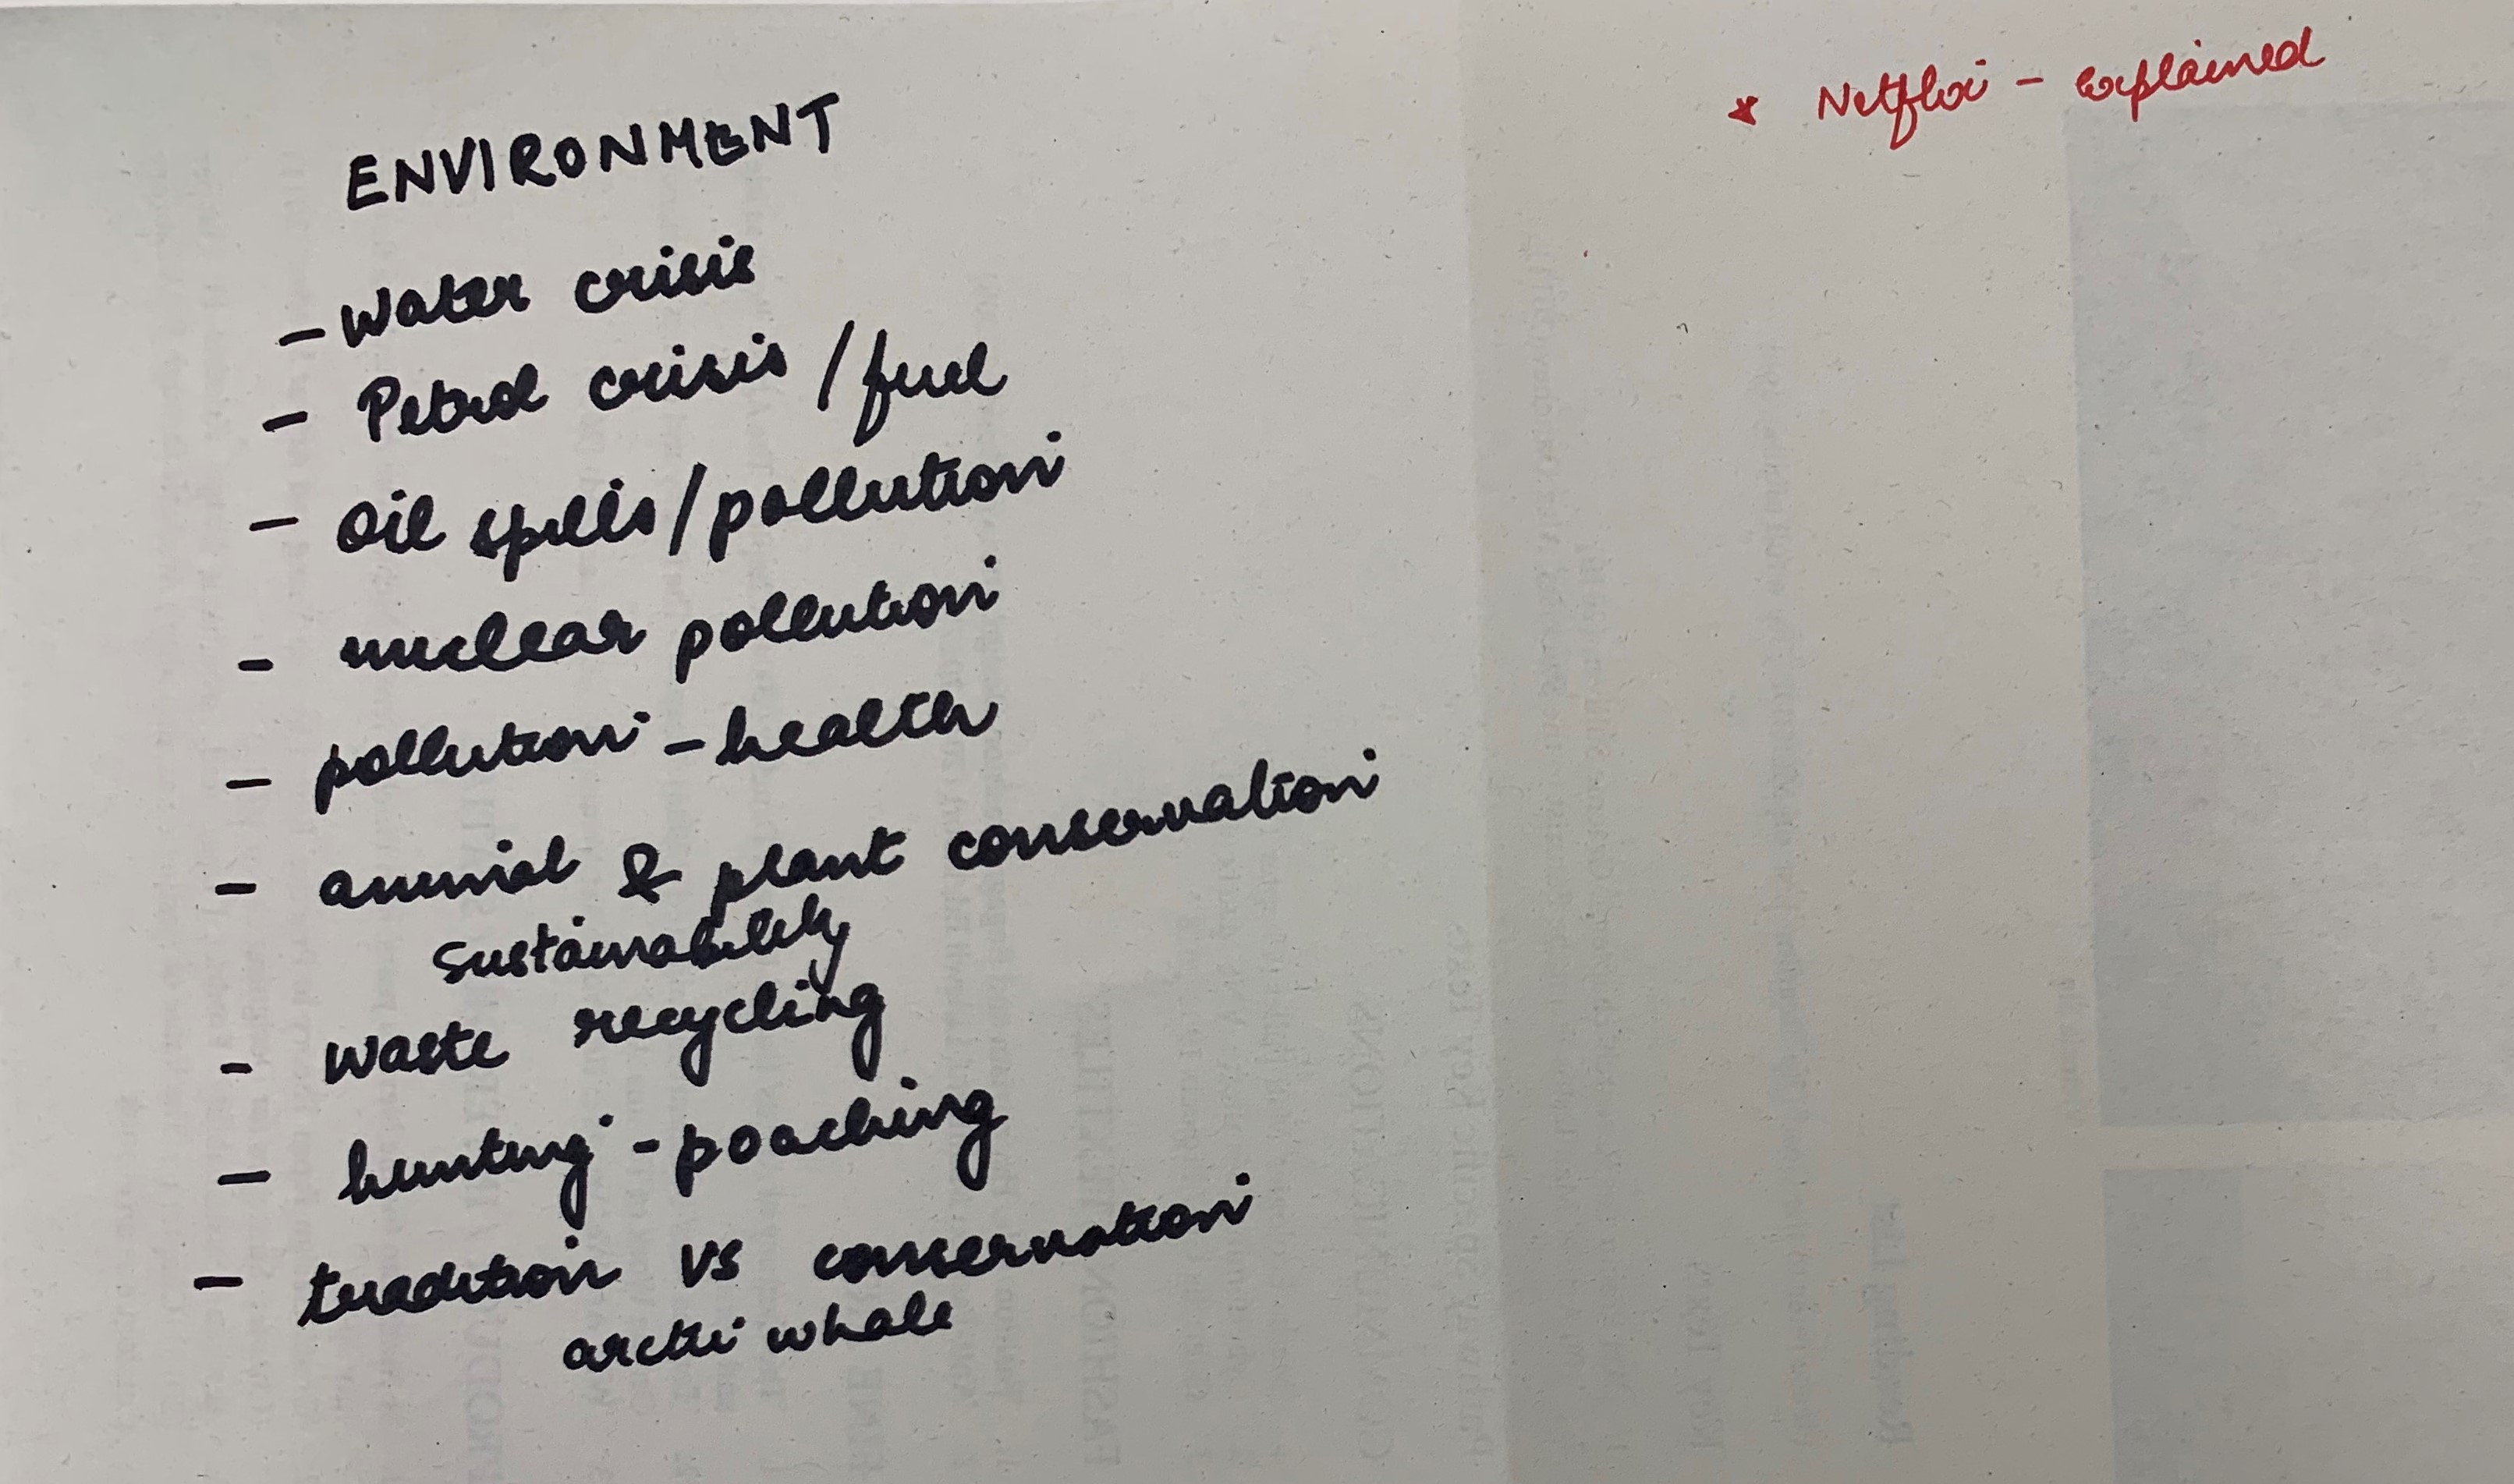 * Netflix - explained
ENVIRONMENT
- Water crisis
- Petrol crisis / fuel
- Oil spills / pollution
- nuclear pollution
- pollution - health
- animal & plant conservation
sustainability
- waste recycling
- hunting - poaching
- tradition vs conservation
arctic whale